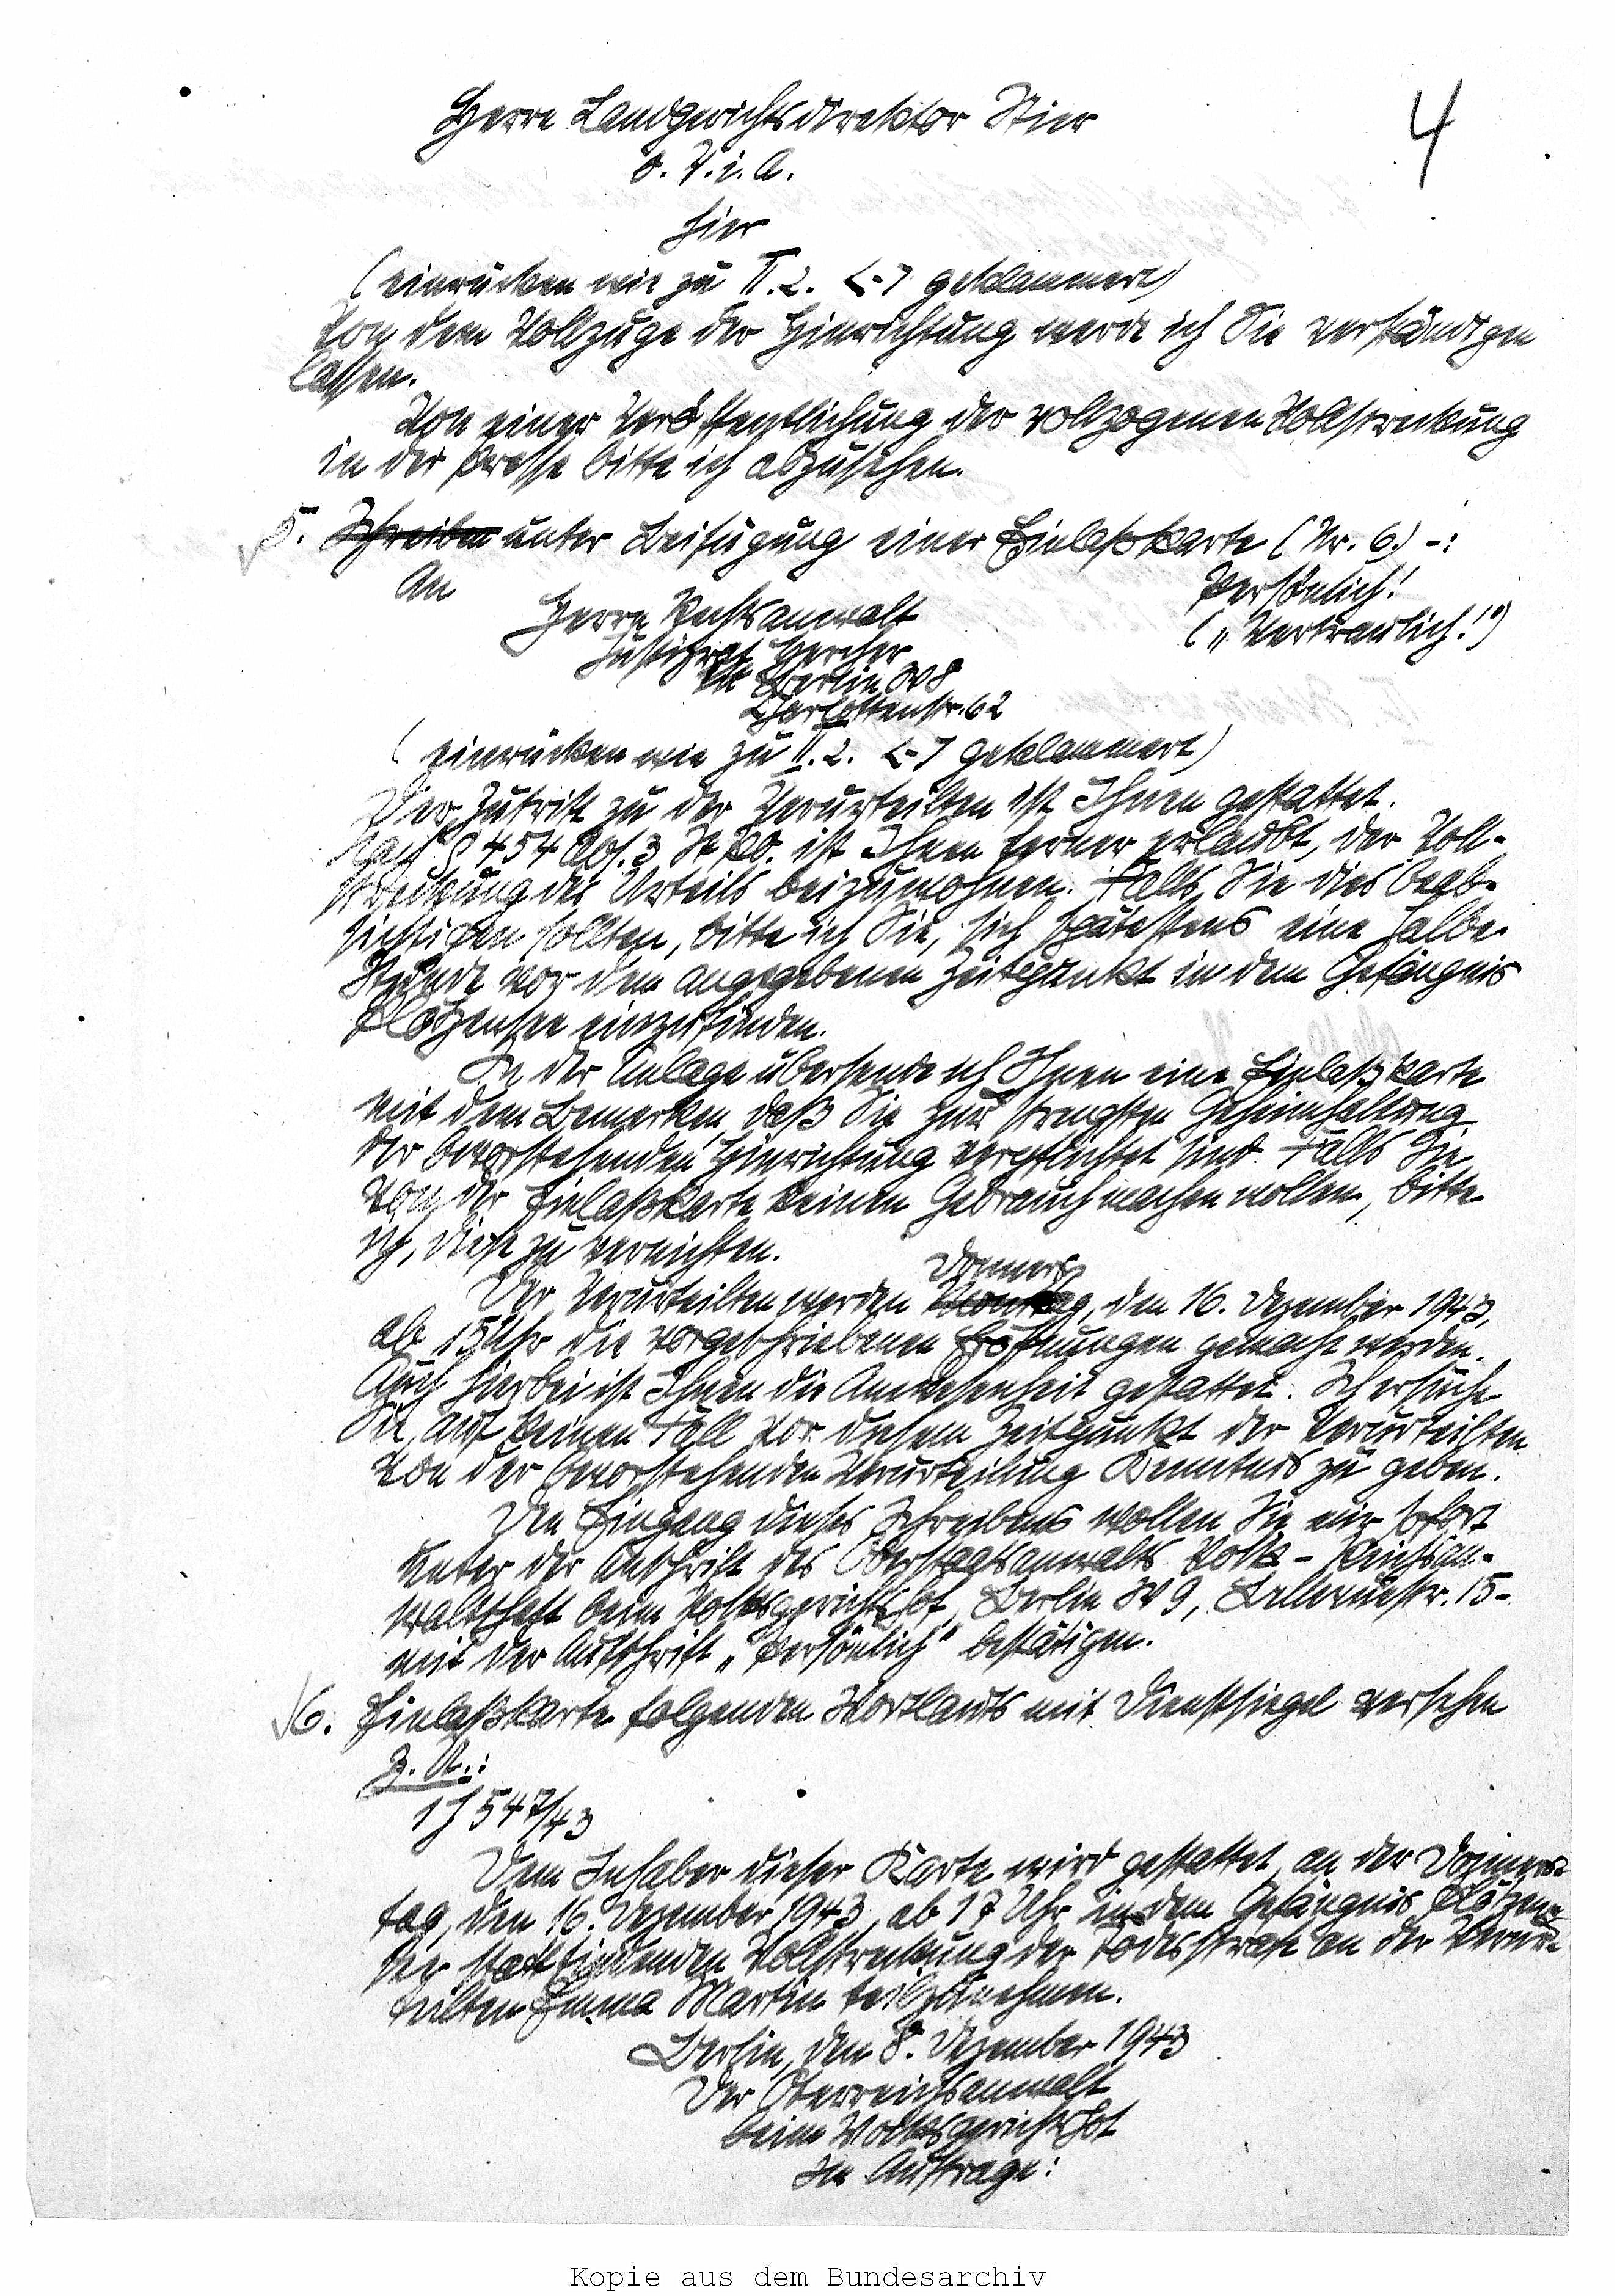 Herrn Landgerichtsdirektor Stier
o. V. i. A.
4
hier
(einrücken wie zu II.2. <-> geklammert)
Von dem Vollzuge der Hinrichtung werde ich Sie verständigen
lassen.
Von einer Veröffentlichung der vollzogenen Vollstreckung
in der Presse bitte ich abzusehen.
5. Schreiben unter Beifügung einer Einlaßkarte (Nr. 6.) -:
An
Persönlich!
Herrn Rechtsanwalt
(„Vertraulich!")
Justizrat Hercher
Berlin W 8
Charlottenstr. 62
(einrücken wie zu II.2. <-> geklammert)
Der Zutritt zu der Verurteilten ist Ihnen gestattet.
Nach § 454 Abs. 3 StPO. ist Ihnen ferner erlaubt, der Voll-
streckung des Urteils beizuwohnen. Falls Sie dies beab-
sichtigen sollten, bitte ich Sie, sich spätestens eine halbe
Stunde vor dem angegebenen Zeitpunkt in dem Gefängnis
Plötzensee einzufinden.
In der Anlage übersende ich Ihnen eine Einlaßkarte
mit dem Bemerken, daß Sie zur strengsten Geheimhaltung
der bevorstehenden Hinrichtung verpflichtet sind. Falls Sie
von der Einlaßkarte keinen Gebrauch machen wollen, bitte
ich, diese zu vernichten.
Donners
Der Verurteilten werden Montag, den 16. Dezember 1943,
ab 15 Uhr die vorgeschriebenen Eröffnungen gemacht werden.
Auch hierbei ist Ihnen die Anwesenheit gestattet. Ich ersuche
Sie, auf keinen Fall vor diesem Zeitpunkt der Verurteilten
von der bevorstehenden Verurteilung Kenntnis zu geben.
Den Eingang dieses Schreibens wollen Sie mir sofort
unter der Anschrift des Oberstaatsanwalts Volk - Reichsan-
waltschaft beim Volksgerichtshof, Berlin W 9, Bellevuestr. 15 -
mit der Aufschrift „Persönlich" bestätigen.
6. Einlaßkarte folgenden Wortlauts mit Dienstsiegel versehen
z. U.:
1 J 547/43
Dem Inhaber dieser Karte wird gestattet, an der Donners-
tag, den 16. Dezember 1943, ab 17 Uhr in dem Gefängnis Plötzen-
see stattfindenden Vollstreckung der Todesstrafe an der Verur-
teilten Emma Martin teilzunehmen.
Berlin, den 8. Dezember 1943
Der Oberreichsanwalt
beim Volksgerichtshof
Im Auftrage:
Kopie aus dem Bundesarchiv